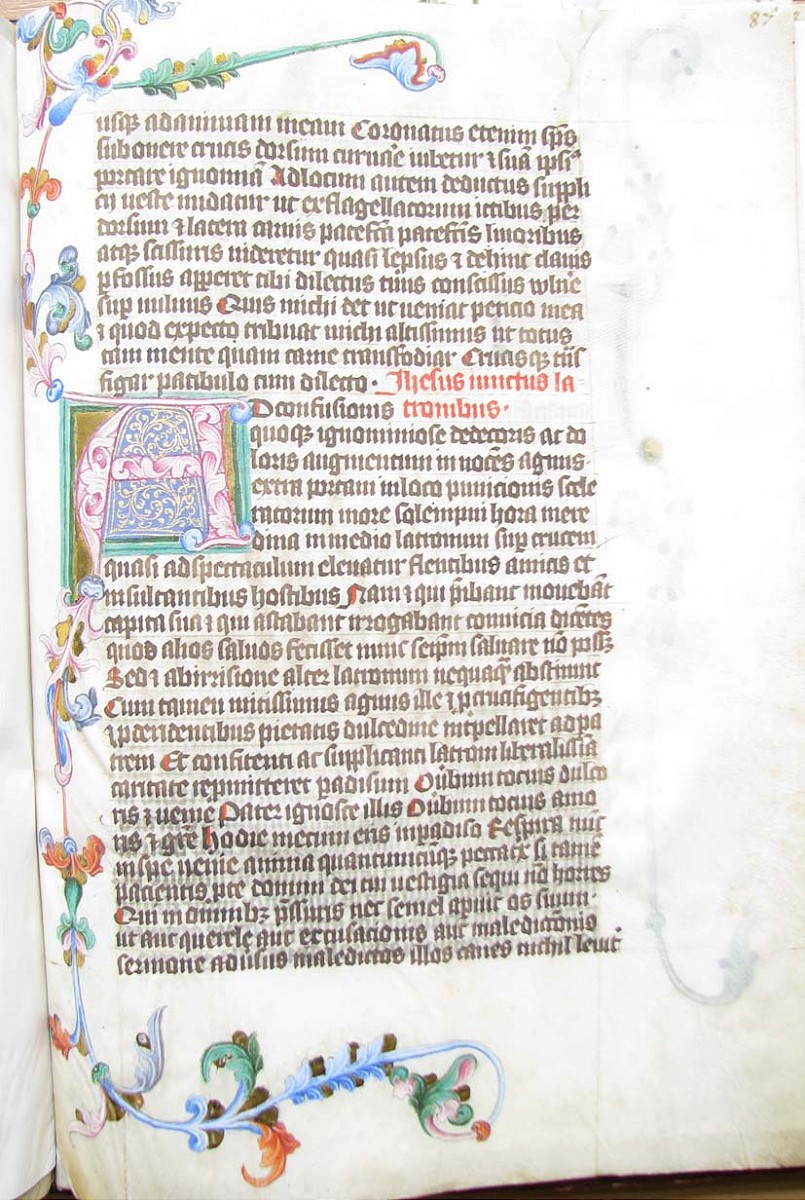 87
usq̨ ad animam meam Coronatus etenim sp̄is
sub onere crucis dorsum curua'e iubetur ⁊ suā ipsi'
portare ignomīā Ad locum autem deductus suppli
cij ueste nudatur ut ex flagellatorum ictibus per
dorsum ⁊ latera carnis patefc̄a patefc̄is liuoribus
atq̨ scissuris uideretur quasi lep̄sus ⁊ dehinc clauis
ꝑfossus apperet tibi dilectus tuus conscissus uln̄e
sup uulnus Quis michi det ut ueniat peticio mea
⁊ quod expecto tribuat michi altissimus ut totus
tam mente quam carne transfodiar Crucisq̨ tūs
figar patibulo cum dilecto · Jhesus iunctus la
D confusionis tronibus·
quoq̨ ignominiose dedecoris ac do
loris augmentum innocēs agnus·
extra portam in loco punicionis scele
ratorum more solempni hora meri
diana in medio latronum sup̄ crucem
quasi ad spectaculum eleuatur flentibus amicis et
insultantibus hostibus Nam ⁊ qui p̄ibant mouebāt
capita sua ⁊ qui astabant irrogabant conuicia dicētes
quod alios saluos fecisset nunc seip̄m saluare nō poss̨
Sed ⁊ ab irrisione alter latronum nequaq̄ abstinuit
Cum tamen mitissimus agnus ille ⁊ ꝓ crucifigentib̨
⁊ ꝓ deridentibus pietatis dulcedine int̄pellaret ad pa
trem Et confitenti ac supplicanti latroni liberalissīa
caritate rep̄mitteret ꝑadisum O ūbum totius dulco
ris ⁊ uenie Pater ignosce illis O ūbum totius amo
ris ⁊ grē̄ Hodie mecum eris in ꝑadiso Respira nūc
in spe uenie anima quantumcūq̨ peccatx̄ si tamē
pacientis ꝓ te domini dei tui uestigia sequi nō horres
Qui in omnib̨ p̄ssuris nec semel aperuit os suum·
ut aut querele aut excusacionis aut maledictōnis
sermone adūsus maledictos illos canes uichil leuit̄